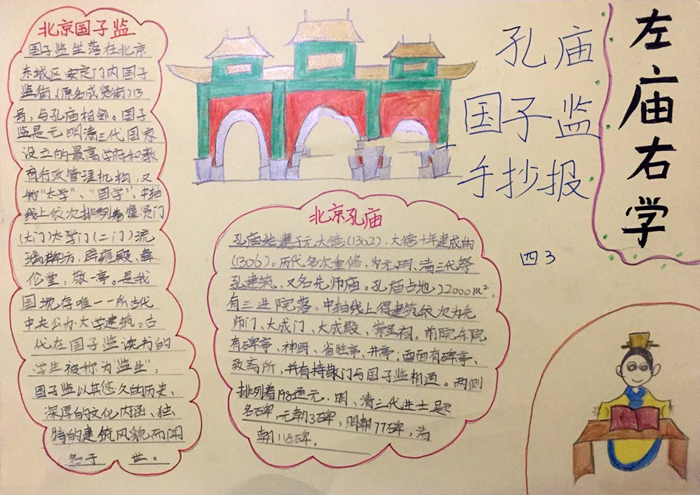 左庙右学
孔庙
国子监
手抄报
四3
北京国子监
国子监坐落在北京
东城区安定门内国子
监街(原名成贤街)15
号,与孔庙相邻。国子
监是元、明、清三代国家
设立的最高学府和教
育行政管理机构,又
称"太学"、"国学"。中轴
线上依次排列着集贤门
(大门)太学门(二门)、琉
璃牌坊、辟雍殿、彝
伦堂、敬一亭。是我
国现存唯一一所古代
中央公办大学建筑。古
代在国子监读书的
学生被称为"监生"。
国子监以其悠久的历史,
深厚的文化内涵,独
特的建筑风貌而闻
名于 世。
北京孔庙
孔庙始建于元大德(1302),大德十年建成
(1306)。历代多次重修,为元、明、清三代祭
孔建筑、又名先师庙。孔庙占地22000m²,
有三进院落。中轴线上得建筑依次为先
师门、大成门、大成殿、崇圣祠,前院东院
有碑亭、神厨、省牲亭、井亭;西面有碑亭、
致斋所,并有持敬门与国子监相通。两侧
排列着198通元、明、清三代进士题
名碑,元朝3碑,明朝77碑,清
朝118碑。